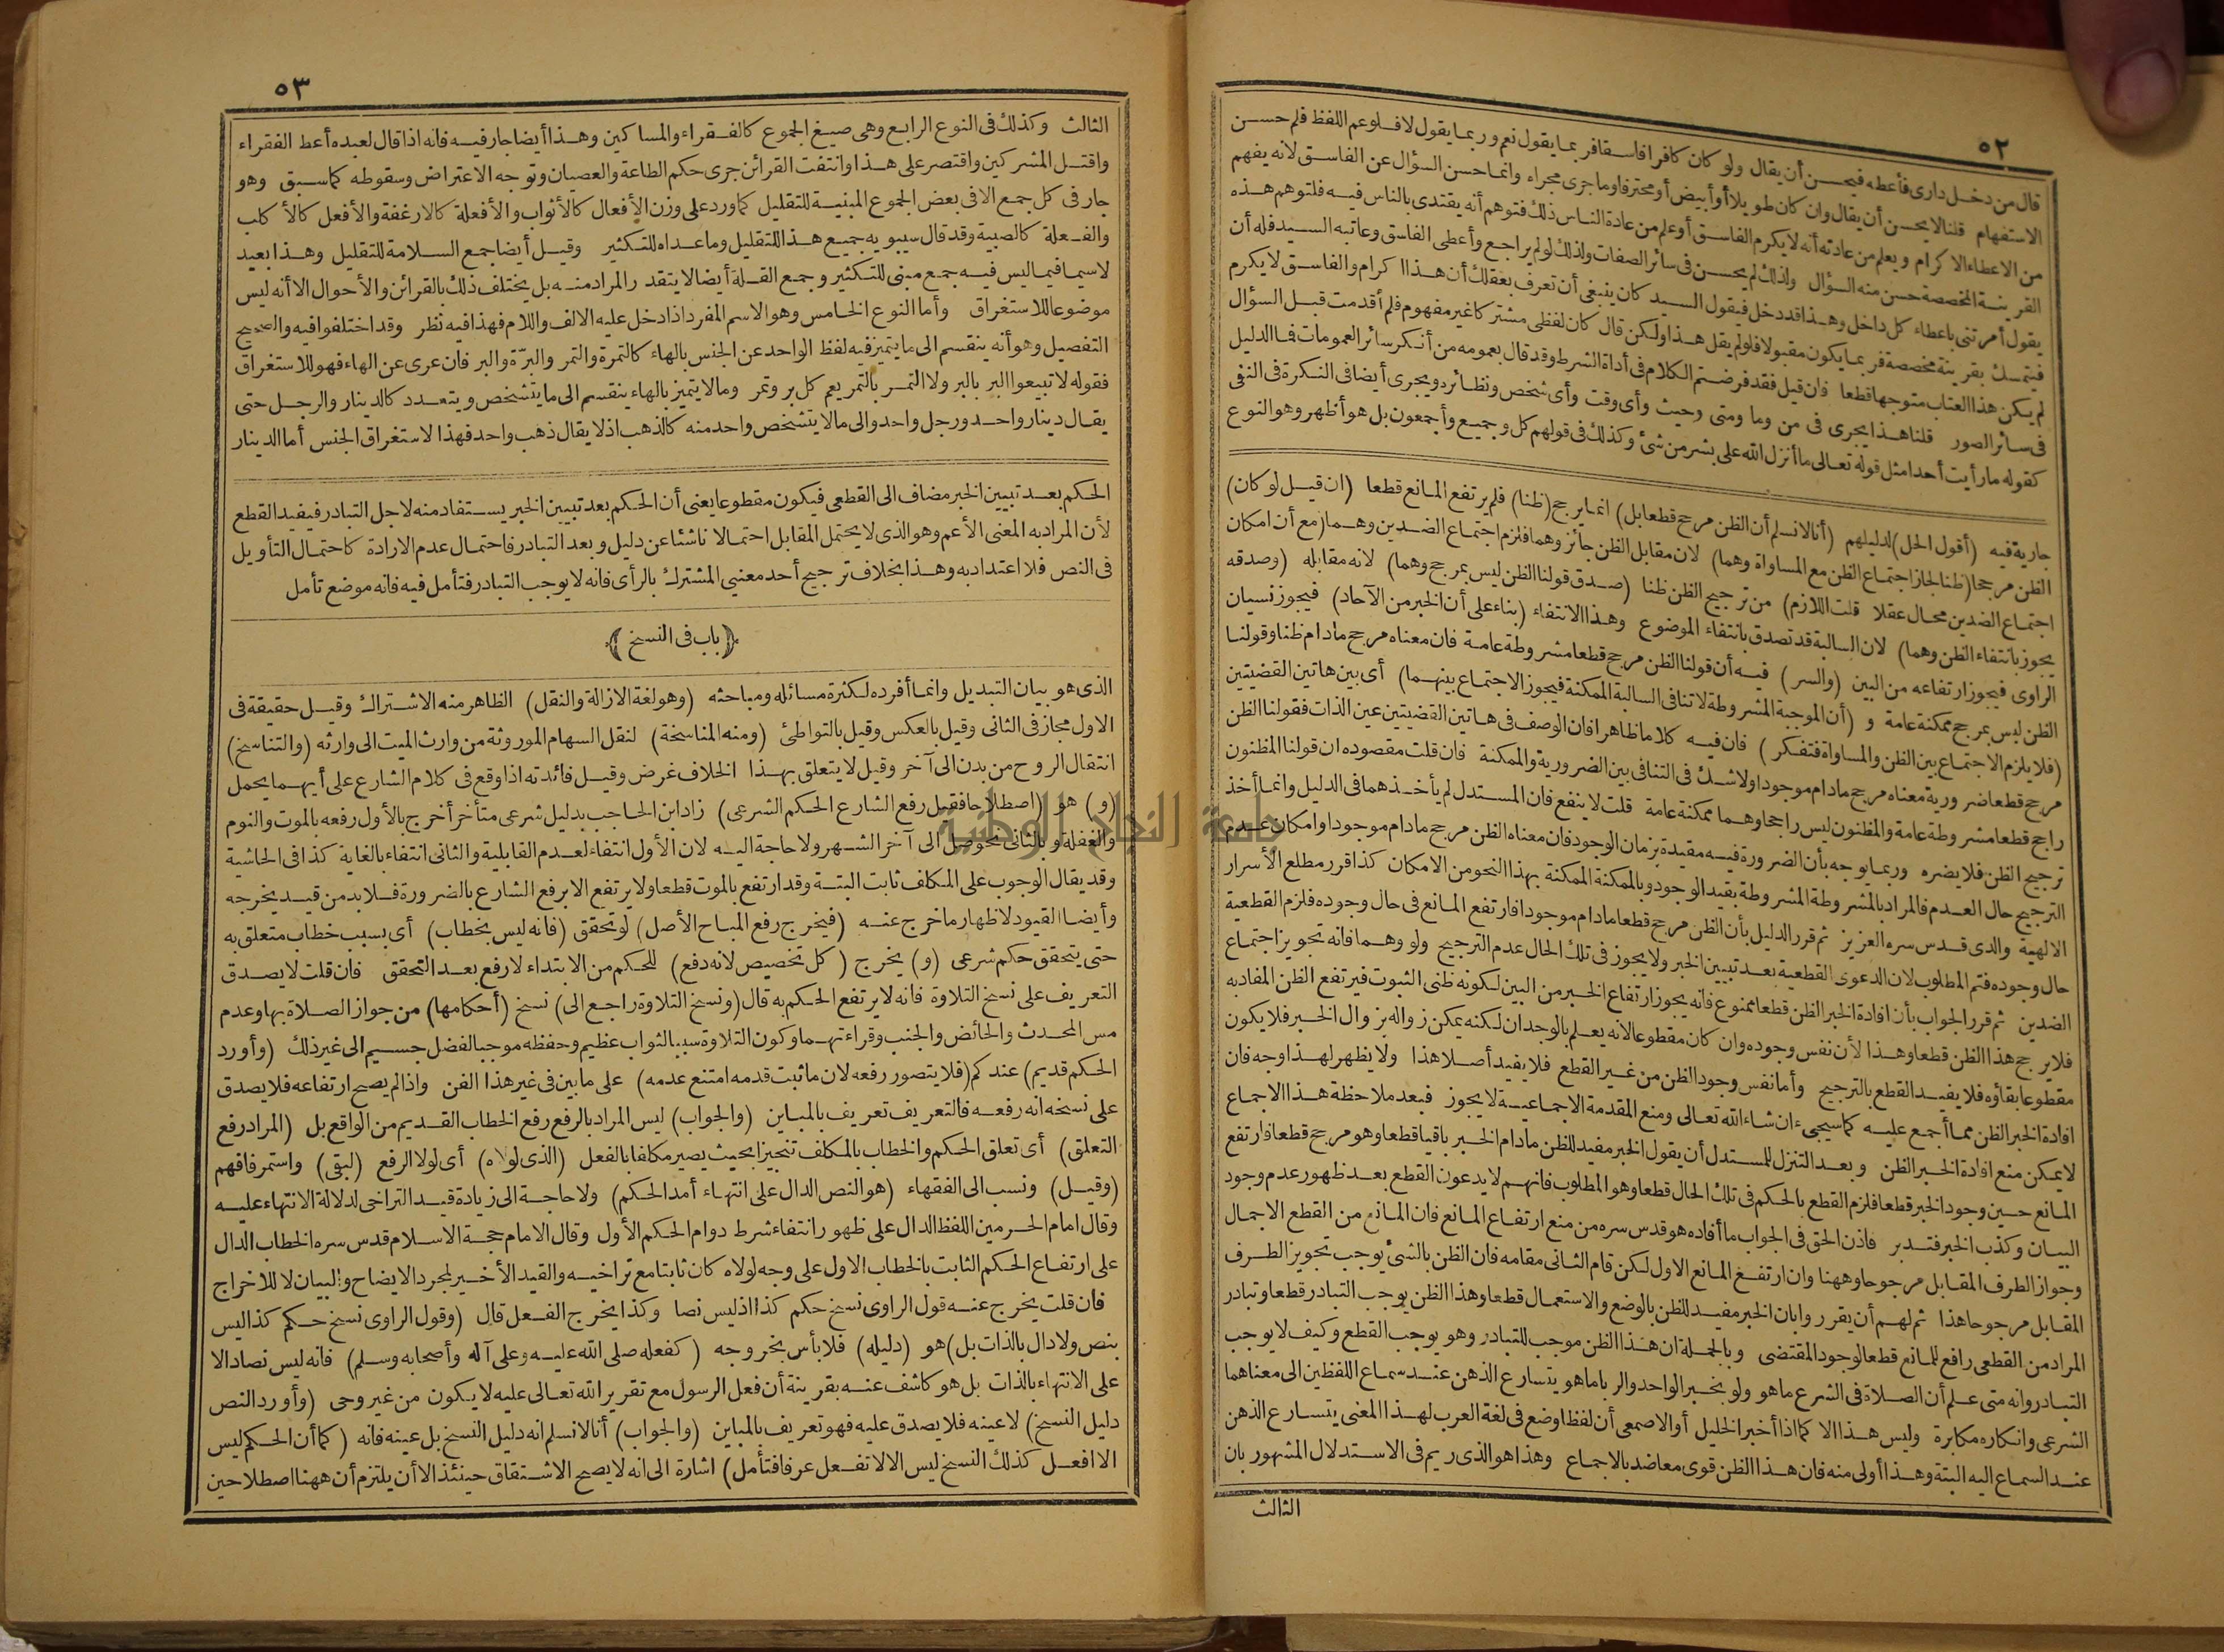 ٥٢
قال من دخل دارى فأعطه فيحسن أن يقال ولو كان كافرا فاسقا فربما يقول نعم وربما يقول لا فلو عم اللفظ فلم حسن
الاستفهام قلنا لا يحسن أن يقال وان كان طويلا أو أبيض أو محترفا وما جرى مجراه وانما حسن السؤال عن الفاسق لانه يفهم
من الاعطاء الاكرام ويعلم من عادته أنه لا يكرم الفاسق أو علم من عادة الناس ذلك فتوهم أنه يقتدى بالناس فيه فلتوهم هذه
القرينة المخصصة حسن منه السؤال ولذلك لم يحسن فى سائر الصفات ولذلك لو لم يراجع وأعطى الفاسق وعاتبه السيد فله أن
يقول أمرتنى باعطاء كل داخل وهذا قد دخل فيقول السيد كان ينبغى أن تعرف بعقلك أن هذا اكرام والفاسق لا يكرم
فيتمسك بقرينة مخصصة فربما يكون مقبولا فلو لم يقل هذا ولكن قال كان لفظى مشتركا غير مفهوم فلم أقدمت قبل السؤال
لم يكن هذا العتاب متوجها قطعا فان قيل فقد فرضتم الكلام فى أداة الشرط وقد قال بعمومه من أنكر سائر العمومات فما الدليل
فى سائر الصور قلنا هذا يجرى فى من وما ومتى وحيث وأى وقت وأى شخص ونظائره ويجرى أيضا فى النكرة فى النفى
كقوله ما رأيت أحدا مثل قوله تعالى ما أنزل الله على بشر من شئ وكذلك فى قولهم كل وجميع وأجمعون بل هو أظهر وهو النوع
جارية فيه (أقول الحل) لدليلهم (أنا لا نسلم أن الظن مرجح قطعا بل) انما يرجح (ظنا) فلم يرتفع المانع قطعا (ان قيل لو كان)
الظن مرجحا (ظنا لجاز اجتماع الظن مع المساواة وهما) لان مقابل الظن جائز وهما فلزم اجتماع الضدين وهما (مع أن امكان
اجتماع الضدين محال عقلا قلت اللازم) من ترجيح الظن ظنا (صدق قولنا الظن ليس بمرجح وهما) لانه مقابله (وصدقه
يجوز بانتفاء الظن وهما) لان السالبة قد تصدق بانتفاء الموضوع وهذا الانتفاء (بناء على أن الخبر من الآحاد) فيجوز نسيان
الراوى فيجوز ارتفاعه من البين (والسر) فيه أن قولنا الظن مرجح قطعا مشروطة عامة فان معناه مرجح ما دام ظنا وقولنا
الظن ليس بمرجح ممكنة عامة و (أن الموجبة المشروطة لا تنافى السالبة الممكنة فيجوز الاجتماع بينهما) أى بين هاتين القضيتين
(فلا يلزم الاجتماع بين الظن والمساواة فتفكر) فان فيه كلاما ظاهرا فان الوصف فى هاتين القضيتين عين الذات فقولنا الظن
مرجح قطعا ضرورية معناه مرجح ما دام موجودا ولا شك فى التنافى بين الضرورية والممكنة فان قلت مقصوده ان قولنا المظنون
راجح قطعا مشروطة عامة والمظنون ليس راجحا وهما ممكنة عامة قلت لا ينفع فان المستدل لم يأخذهما فى الدليل وانما أخذ
ترجيح الظن فلا يضره وربما يوجه بأن الضرورة فيه مقيدة بزمان الوجود فان معناه الظن مرجح ما دام موجودا وامكان عدم
الترجيح حال العدم فالمراد بالمشروطة المشروطة بقيد الوجود وبالممكنة الممكنة بهذا النحو من الامكان كذا قرر مطلع الأسرار
الالهية والدى قدس سره العزيز ثم قرر الدليل بأن الظن مرجح قطعا ما دام موجودا فارتفع المانع فى حال وجوده فلزم القطعية
حال وجوده فتم المطلوب لان الدعوى القطعية بعد تبيين الخبر ولا يجوز فى تلك الحال عدم الترجيح ولو وهما فانه تجويز اجتماع
الضدين ثم قرر الجواب بأن افادة الخبر الظن قطعا ممنوع فانه يجوز ارتفاع الخبر من البين لكونه ظنى الثبوت فيرتفع الظن المفاد به
فلا يرجح هذا الظن قطعا وهذا لأن نفس وجوده وان كان مقطوعا لانه يعلم بالوجدان لكنه يمكن زواله بزوال الخبر فلا يكون
مقطوعا بقاؤه فلا يفيد القطع بالترجيح وأما نفس وجود الظن من غير القطع فلا يفيد أصلا هذا ولا يظهر لهذا وجه فان
افادة الخبر الظن مما أجمع عليه كما سيجىء ان شاء الله تعالى ومنع المقدمة الاجماعية لا يجوز فبعد ملاحظة هذا الاجماع
لا يمكن منع افادة الخبر الظن وبعد التنزل للمستدل أن يقول الخبر مفيد للظن ما دام الخبر باقيا قطعا وهو مرجح قطعا فارتفع
المانع حين وجود الخبر قطعا فلزم القطع بالحكم فى تلك الحال قطعا وهو المطلوب فانهم لا يدعون القطع بعد ظهور عدم وجود
البيان وكذب الخبر فتدبر فاذن الحق فى الجواب ما أفاده هو قدس سره من منع ارتفاع المانع فان المانع من القطع الاجمال
وجواز الطرف المقابل مرجوحا وههنا وان ارتفع المانع الاول لكن قام الثانى مقامه فان الظن بالشئ يوجب تجويز الطرف
المقابل مرجوحا هذا ثم لهم أن يقرروا بان الخبر مفيد للظن بالوضع والاستعمال قطعا وهذا الظن يوجب التبادر قطعا وتبادر
المراد من القطعى رافع للمانع قطعا لوجود المقتضى وبالجملة ان هذا الظن موجب للتبادر وهو يوجب القطع وكيف لا يوجب
التبادر وانه متى علم أن الصلاة فى الشرع ما هو ولو بخبر الواحد والربا ما هو يتسارع الذهن عند سماع اللفظين الى معناهما
الشرعى وانكاره مكابرة وليس هذا الا كما اذا أخبر الخليل أو الاصمعى أن لفظا وضع فى لغة العرب لهذا المعنى يتسارع الذهن
عند السماع اليه البتة وهذا أولى منه فان هذا الظن قوى معاضد بالاجماع وهذا هو الذى ريم فى الاستدلال المشهور بان
الثالث
٥٣
الثالث وكذلك فى النوع الرابع وهى صيغ الجموع كالفقراء والمساكين وهذا أيضا جار فيه فانه اذا قال لعبده أعط الفقراء
واقتل المشركين واقتصر على هذا وانتفت القرائن جرى حكم الطاعة والعصيان وتوجه الاعتراض وسقوطه كما سبق وهو
جار فى كل جمع الا فى بعض الجموع المبنية للتقليل كما ورد على وزن الأفعال كالأثواب والأفعلة كالارغفة والأفعل كالأكلب
والفعلة كالصبية وقد قال سيبويه جميع هذا للتقليل وما عداه للتكثير وقيل أيضا جمع السلامة للتقليل وهذا بعيد
لا سيما فيما ليس فيه جمع مبنى للتكثير وجمع القلة أيضا لا يتقدر المراد منه بل يختلف ذلك بالقرائن والأحوال الا أنه ليس
موضوعا للاستغراق وأما النوع الخامس وهو الاسم المفرد اذا دخل عليه الالف واللام فهذا فيه نظر وقد اختلفوا فيه والصحيح
التفصيل وهو أنه ينقسم الى ما يتميز فيه لفظ الواحد عن الجنس بالهاء كالتمرة والتمر والبرّة والبر فان عرى عن الهاء فهو للاستغراق
فقوله لا تبيعوا البر بالبر ولا التمر بالتمر يعم كل بر وتمر وما لا يتميز بالهاء ينقسم الى ما يتشخص ويتعدد كالدينار والرجل حتى
يقال دينار واحد ورجل واحد والى ما لا يتشخص واحد منه كالذهب اذ لا يقال ذهب واحد فهذا لاستغراق الجنس أما الدينار
الحكم بعد تبيين الخبر مضاف الى القطعى فيكون مقطوعا يعنى أن الحكم بعد تبيين الخبر يستفاد منه لاجل التبادر فيفيد القطع
لأن المراد به المعنى الأعم وهو الذى لا يحتمل المقابل احتمالا ناشئا عن دليل وبعد التبادر فاحتمال عدم الارادة كاحتمال التأويل
فى النص فلا اعتداد به وهذا بخلاف ترجيح أحد معنيى المشترك بالرأى فانه لا يوجب التبادر فتأمل فيه فانه موضع تأمل
﴿باب فى النسخ﴾
الذى هو بيان التبديل وانما أفرده لكثرة مسائله ومباحثه (وهو لغة الازالة والنقل) الظاهر منه الاشتراك وقيل حقيقة فى
الاول مجاز فى الثانى وقيل بالعكس وقيل بالتواطئ (ومنه المناسخة) لنقل السهام الموروثة من وارث الميت الى وارثه (والتناسخ)
انتقال الروح من بدن الى آخر وقيل لا يتعلق بهذا الخلاف غرض وقيل فائدته اذا وقع فى كلام الشارع على أيهما يحمل
(و) هو (اصطلاحا فقيل رفع الشارع الحكم الشرعى) زاد ابن الحاجب بدليل شرعى متأخر أخرج بالأول رفعه بالموت والنوم
والغفلة وبالثانى نحو صل الى آخر الشهر ولا حاجة اليه لان الأول انتفاء لعدم القابلية والثانى انتفاء بالغاية كذا فى الحاشية
وقد يقال الوجوب على المكلف ثابت البتة وقد ارتفع بالموت قطعا ولا يرتفع الا برفع الشارع بالضرورة فلا بد من قيد يخرجه
وأيضا القيود لاظهار ما خرج عنه (فيخرج رفع المباح الأصل) لو تحقق (فانه ليس بخطاب) أى بسبب خطاب متعلق به
حتى يتحقق حكم شرعى (و) يخرج (كل تخصيص لانه دفع) للحكم من الابتداء لا رفع بعد التحقق فان قلت لا يصدق
التعريف على نسخ التلاوة فانه لا يرتفع الحكم به قال (ونسخ التلاوة راجع الى) نسخ (أحكامها) من جواز الصلاة بها وعدم
مس المحدث والحائض والجنب وقراءتهما وكون التلاوة سببا لثواب عظيم وحفظه موجبا لفضل جسيم الى غير ذلك (وأورد
الحكم قديم) عندكم (فلا يتصور رفعه لان ما ثبت قدمه امتنع عدمه) على ما بين فى غير هذا الفن واذا لم يصح ارتفاعه فلا يصدق
على نسخه انه رفعه فالتعريف تعريف بالمباين (والجواب) ليس المراد بالرفع رفع الخطاب القديم من الواقع بل (المراد رفع
التعلق) أى تعلق الحكم والخطاب بالمكلف تنجيزا بحيث يصير مكلفا بالفعل (الذى لولاه) أى لولا الرفع (لبقى) واستمر فافهم
(وقيل) ونسب الى الفقهاء (هو النص الدال على انتهاء أمد الحكم) ولا حاجة الى زيادة قيد التراخى لدلالة الانتهاء عليه
وقال امام الحرمين اللفظ الدال على ظهور انتفاء شرط دوام الحكم الأول وقال الامام حجة الاسلام قدس سره الخطاب الدال
على ارتفاع الحكم الثابت بالخطاب الاول على وجه لولاه كان ثابتا مع تراخيه والقيد الأخير لمجرد الايضاح والبيان لا للاخراج
فان قلت يخرج عنه قول الراوى نسخ حكم كذا اذ ليس نصا وكذا يخرج الفعل قال (وقول الراوى نسخ حكم كذا ليس
بنص ولا دال بالذات بل) هو (دليله) فلا بأس بخروجه (كفعله صلى الله عليه وعلى آله وأصحابه وسلم) فانه ليس نصا دالا
على الانتهاء بالذات بل هو كاشف عنه بقرينة أن فعل الرسول مع تقرير الله تعالى عليه لا يكون من غير وحى (وأورد النص
دليل النسخ) لا عينه فلا يصدق عليه فهو تعريف بالمباين (والجواب) أنا لا نسلم انه دليل النسخ بل عينه فانه (كما أن الحكم ليس
الا افعل كذلك النسخ ليس الا لا تفعل عرفا فتأمل) اشارة الى انه لا يصح الاشتقاق حينئذ الا أن يلتزم أن ههنا اصطلاحين
جامعة النجاح الوطنية